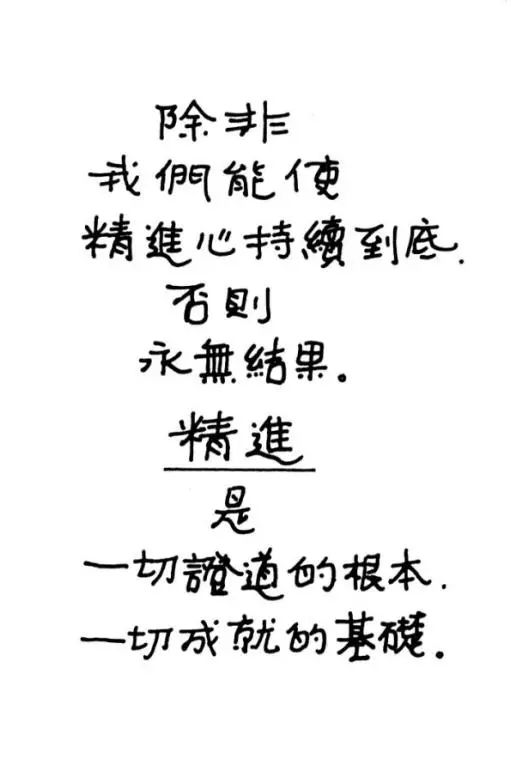 除非
我們能使
精進心持續到底.
否則
永無結果。
精進
是
一切證道的根本.
一切成就的基礎。